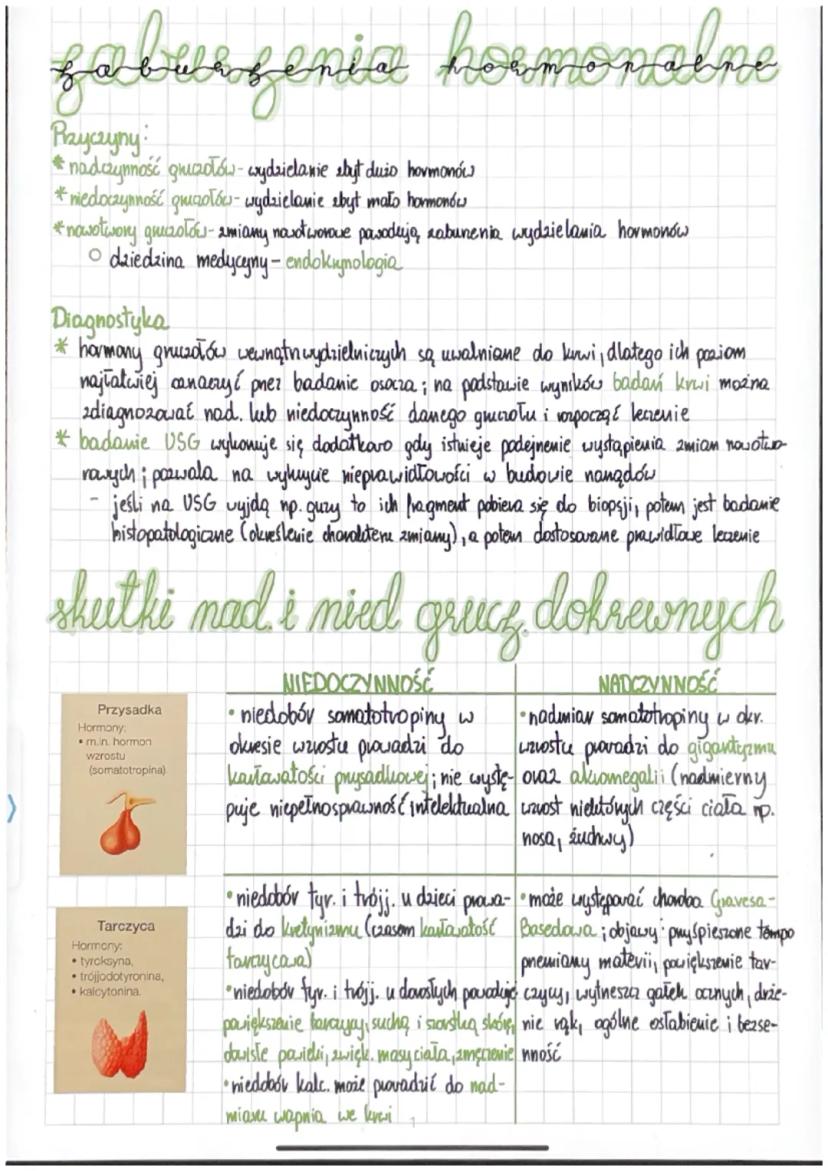 zaburzenia hormonalne
Przyczyny:
* nadczynność gruczołów - wydzielanie zbyt dużo hormonów
* niedoczynność gruczołów - wydzielanie zbyt mało hormonów
* nowotwory gruczołów - zmiany nowotworowe powodują zaburzenia wydzielania hormonów
○ dziedzina medycyny - endokrynologia
Diagnostyka
* hormony gruczołów wewnątrzwydzielniczych są uwalniane do krwi, dlatego ich poziom
najłatwiej oznaczyć przez badanie osocza; na podstawie wyników badań krwi można
zdiagnozować nad. lub niedoczynność danego gruczołu i rozpocząć leczenie
* badanie USG wykonuje się dodatkowo gdy istnieje podejrzenie wystąpienia zmian nowotwo-
rowych; pozwala na wykrycie nieprawidłowości w budowie narządów
- jeśli na USG wyjdą np. guzy to ich fragment pobiera się do biopsji, potem jest badanie
histopatologiczne (określenie charakteru zmiany), a potem dostosowane prawidłowe leczenie
skutki nad. i nied grucz. dokrewnych
NIEDOCZYNNOŚĆ
NADCZYNNOŚĆ
Przysadka
Hormony:
• m.in. hormon
wzrostu
(somatotropina)
• niedobór somatotropiny w
okresie wzrostu prowadzi do
karłowatości przysadkowej; nie wystę-
puje niepełnosprawność intelektualna
• nadmiar somatotropiny w okr.
wzrostu prowadzi do gigantyzmu
oraz akromegalii (nadmierny
wzrost niektórych części ciała np.
nosa, żuchwy)
Tarczyca
Hormony:
• tyroksyna,
• trójjodotyronina,
• kalcytonina.
• niedobór tyr. i trójj. u dzieci prowa-
dzi do kretynizmu (czasem karłowatość
tarczycowa)
• niedobór tyr. i trójj. u dorosłych powoduje
powiększenie tarczycy, suchą i szorstką skórę,
obwisłe powieki, zwięk. masy ciała, zmęczenie
• niedobór kalc. może prowadzić do nad-
miaru wapnia we krwi
• może występować choroba Gravesa-
Basedowa; objawy: przyśpieszone tempo
przemiany materii, powiększenie tar-
czycy, wytrzeszcz gałek ocznych, drże-
nie rąk, ogólne osłabienie i bezse-
nność